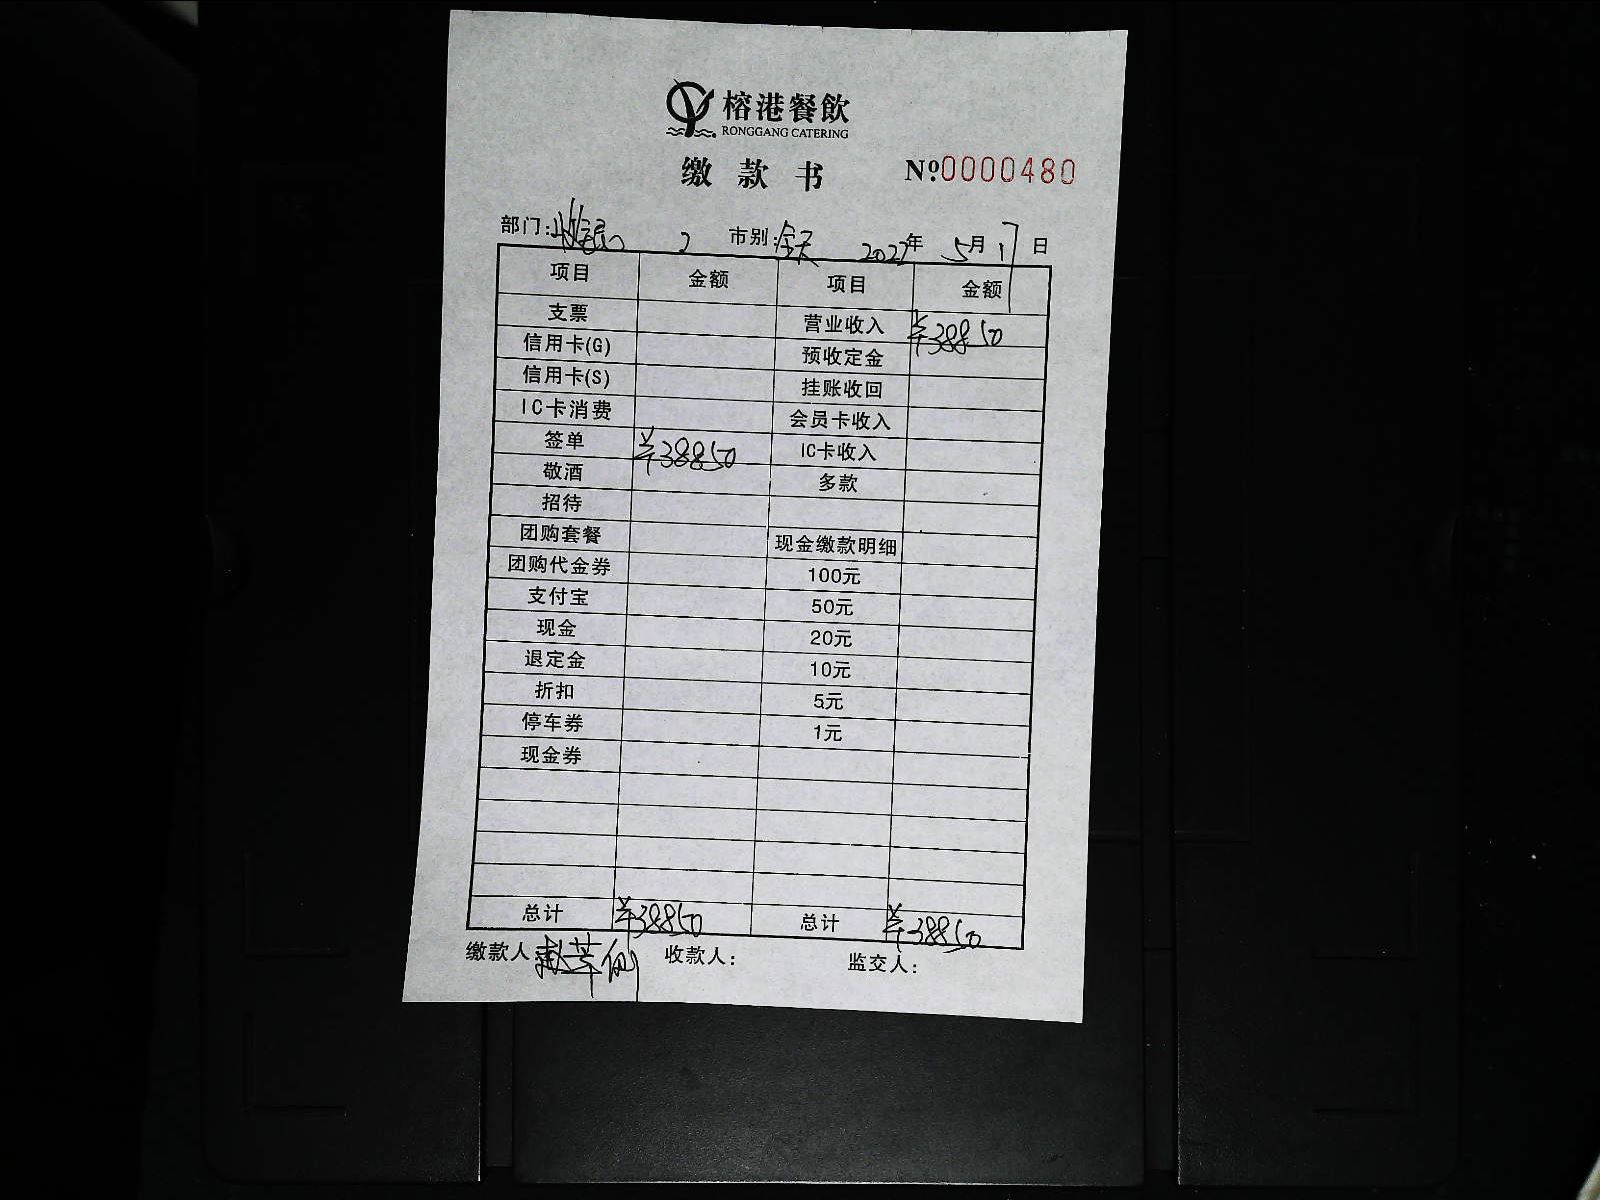 榕港餐飲
RONGGANG CATERING
缴款书 No.0000480
部门: 2 市别:全天 2022年 5月17日
项目 金额 项目 金额
支票 营业收入 ¥38850
信用卡(G) 预收定金
信用卡(S) 挂账收回
IC卡消费 会员卡收入
签单 ¥38850 IC卡收入
敬酒 多款
招待
团购套餐 现金缴款明细
团购代金券 100元
支付宝 50元
现金 20元
退定金 10元
折扣 5元
停车券 1元
现金券
总计 ¥38850 总计 ¥38850
缴款人: 收款人: 监交人: